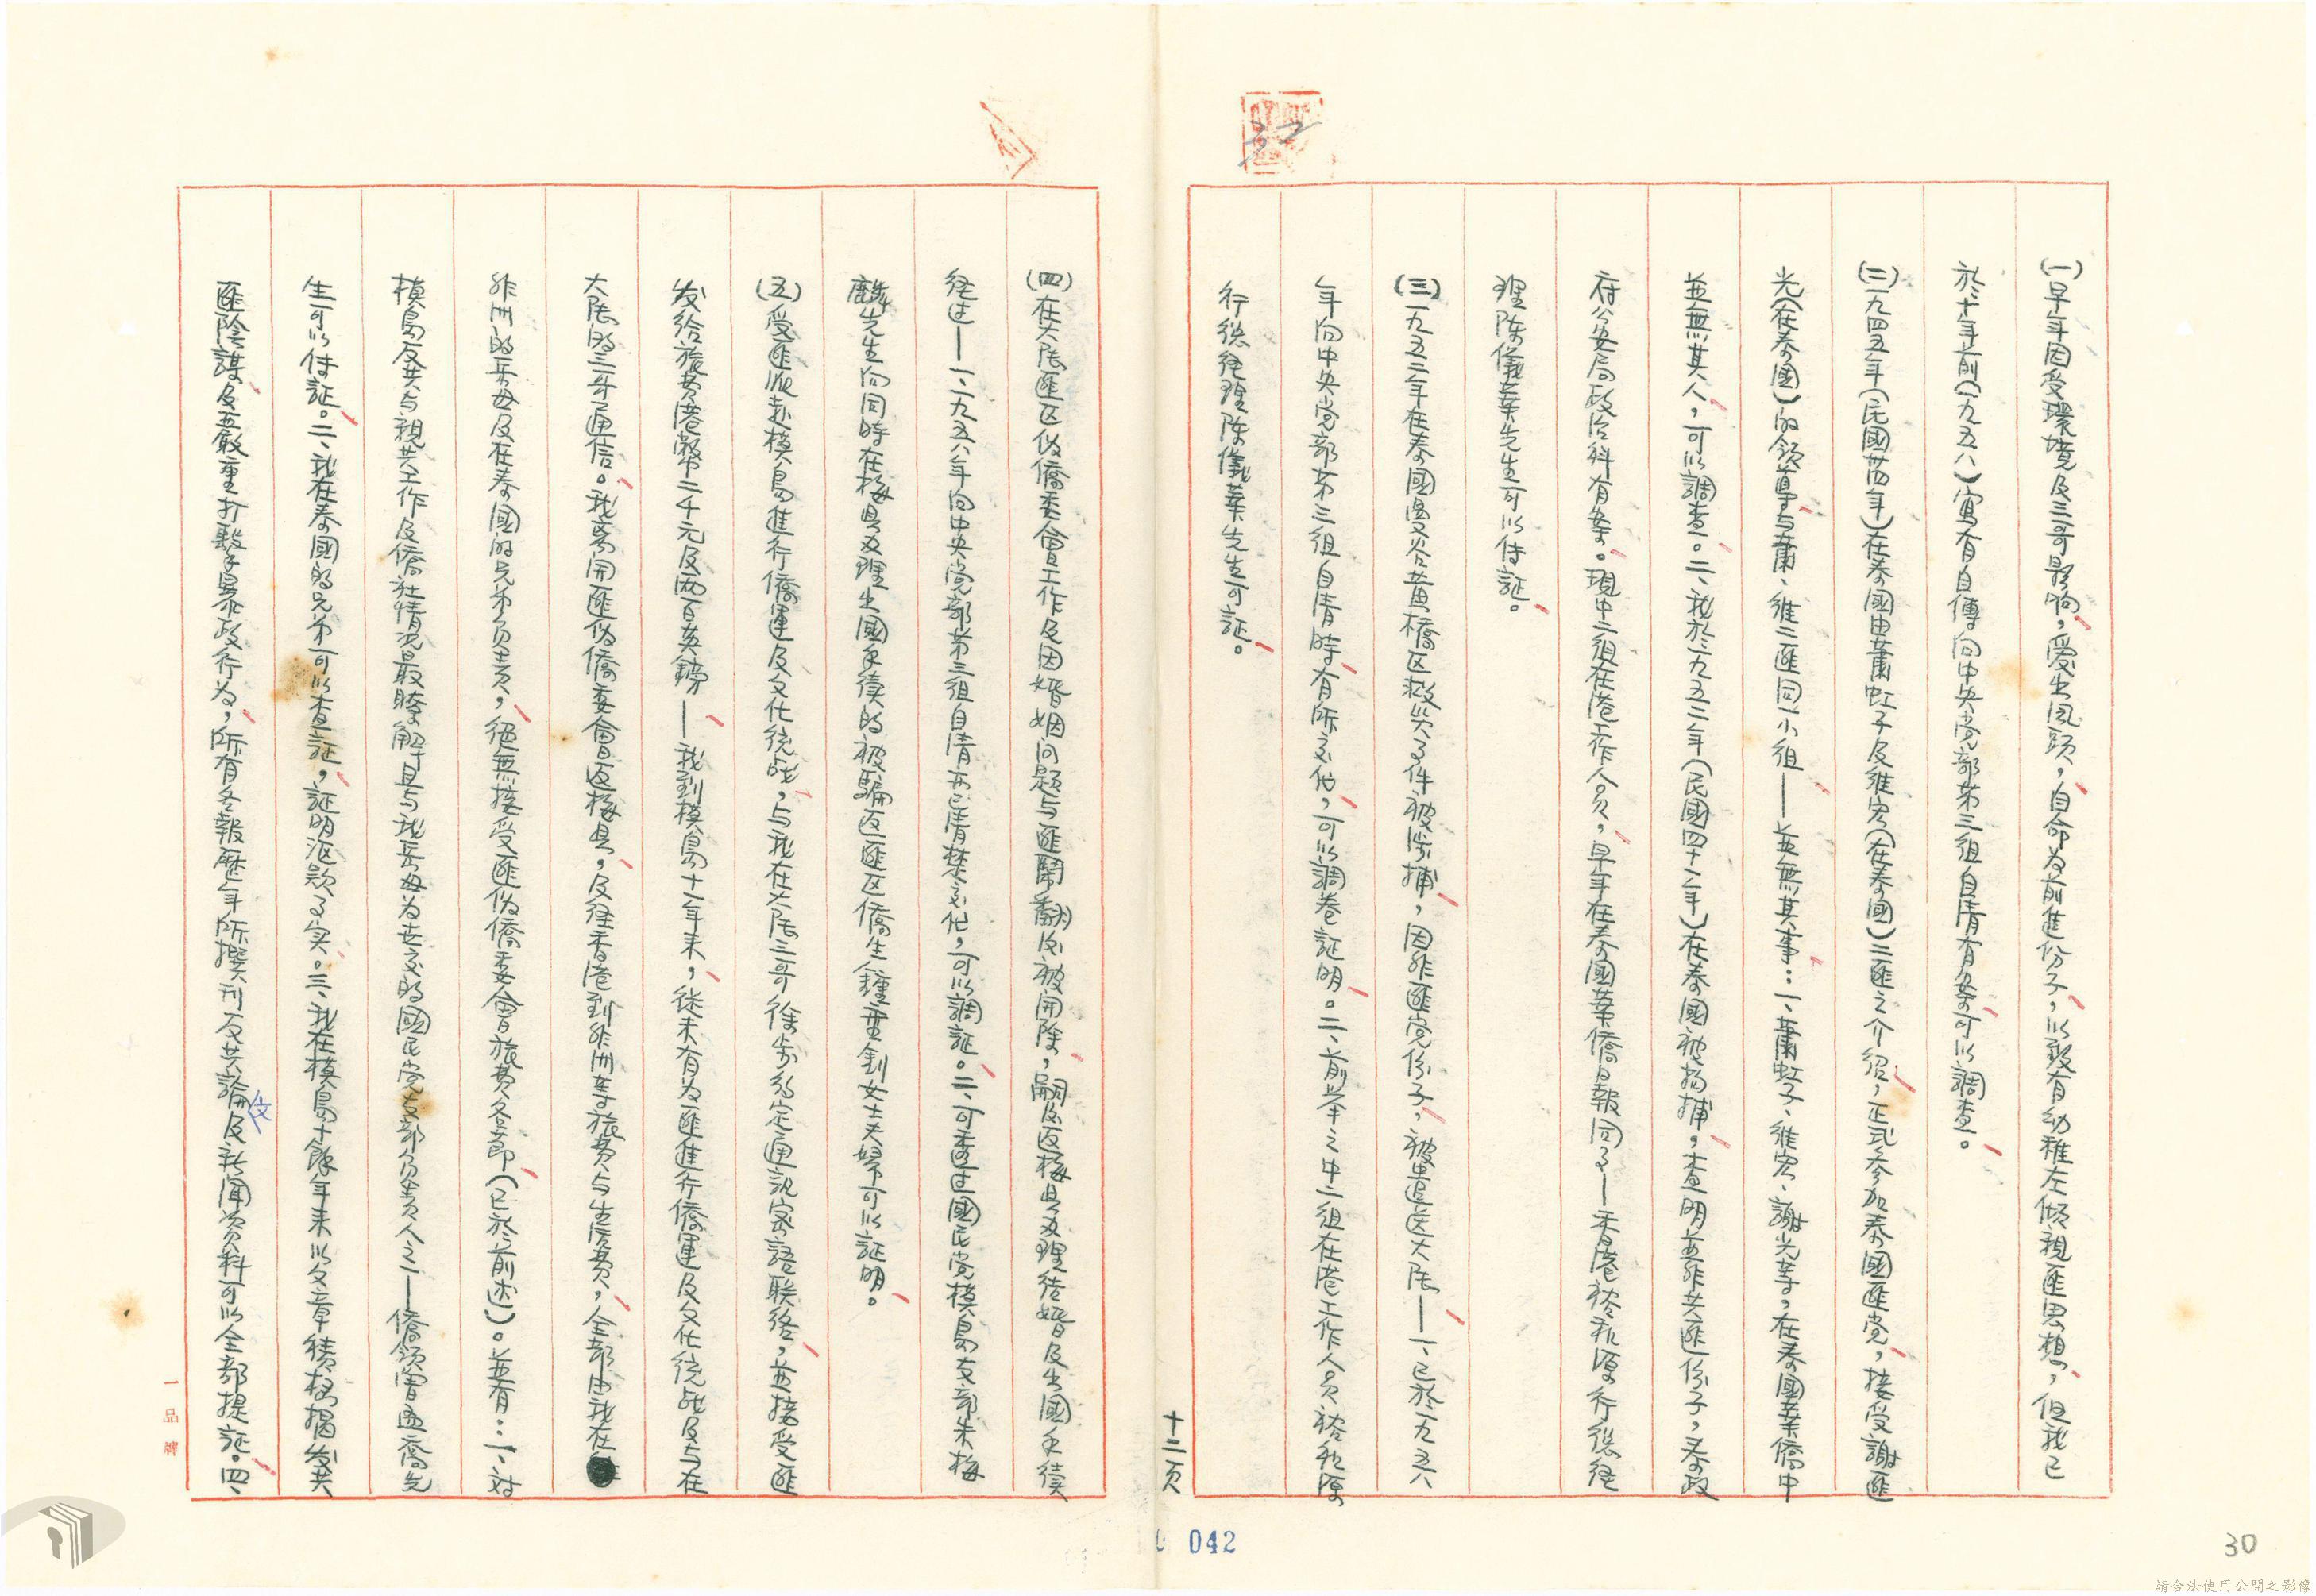 (一)早年因受環境及三哥影响，愛出風頭，自命为前進份子，以致有幼稚左傾親匪思想，但我已
於十年前(一九五八)寫有自傳向中央党部第三組自清有案可以調查。
(二)一九四五年(民國卅四年)在泰國由蕭虹子及維宏(在泰國)二匪之介紹，正式參加泰國匪党，接受謝匪
光(在泰國)的領導与蕭、維二匪同一小組——並無其事：一、蕭虹子、維宏、謝光等，在泰國華僑中
並無其人，可以調查。二、我於一九五二年(民國四十一年)在泰國被拘捕，查明並非共匪份子，泰政
府公安局政治科有案。現中二組在港工作人員，早年在泰國華僑日報同事—香港 行總経
理陈儀華先生可以付証。
(三)一九五二年在泰國 黄橋区救災事件被 捕，因 匪党份子，被遣送大陆——一、已於一九五八
年向中央党部第三組自清時有所交代，可以調卷証明。二、前举之中二組在港工作人員
行総経理陈儀華先生可証。
(四)在大陆匪区伪僑委會工作及因婚姻问题与匪鬧翻後被开除，嗣後返梅县办理结婚及出國手續
经过——一、一九五八年向中央党部第三組自清亦已清楚交代，可以調証。二、可查透过國民党模島支部朱梅
麟先生向同時在梅县办理出國手續的被騙返匪区僑生鍾 釗女士夫婦可以証明。
(五)受匪派赴模島進行僑運及文化統战，与我在大陆三哥徐 約定通訊密語联络，並接受匪
发给旅費港幣二千元及兩百英鎊—我到模島十一年来，從未有为匪進行僑運及文化統战及与在
大陆的三哥通信。我离開匪伪僑委會返梅县，及往香港到非洲等旅費与生活費，全部由我在
非洲的岳母及在泰國的兄弟负责，絕無接受匪伪僑委會旅費各節(已於前述)。並有：一、对
模島反共与親共工作及僑社情况最瞭解且与我岳母为世交的國民党支部负责人之一—僑領曾 先
生可以付証。二、我在泰國的兄弟可以查証，証明 款事实。三、我在模島十餘年来以文章積極揭发共
匪陰謀及並嚴重打擊 暴政行为，所有各報歷年所撰刊反共論文及新闻资料可以全部提証。四、
十二頁
042
30
32
一品牌
請合法使用公開之影像